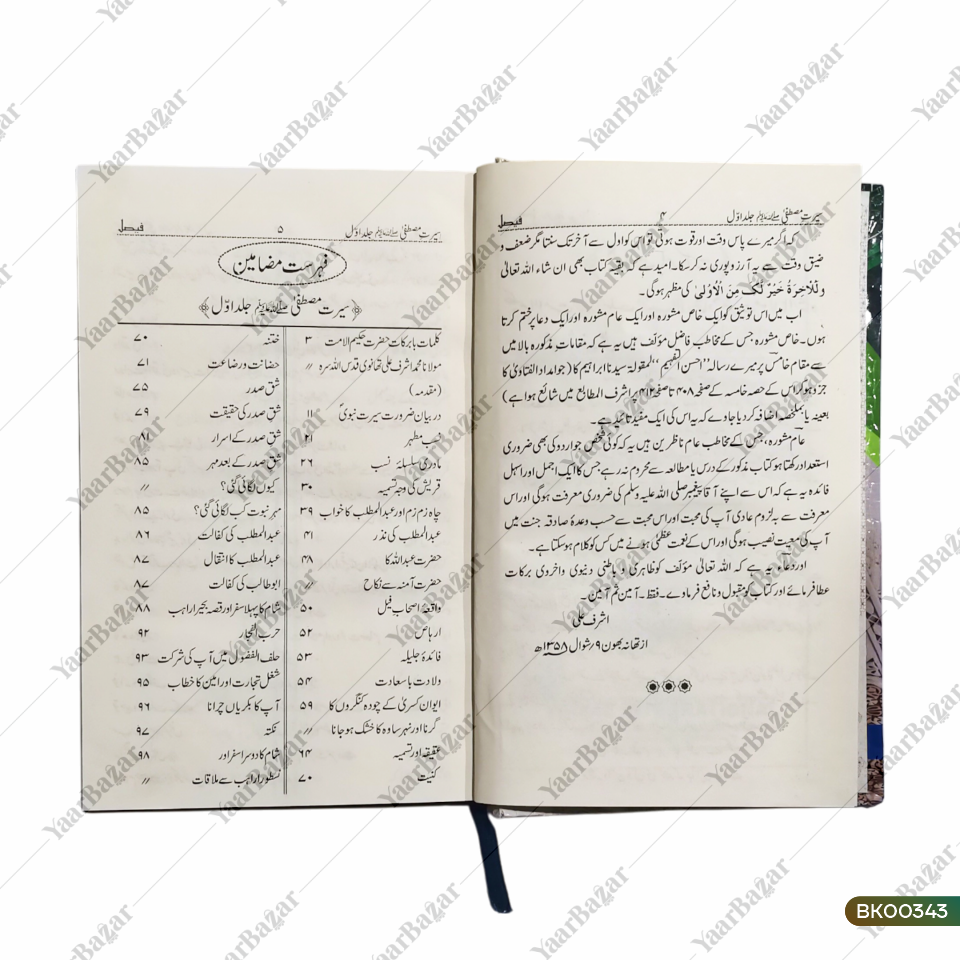 سیرت مصطفیٰ ﷺ جلد اوّل ۴ فیصل
کہ اگر میرے پاس وقت اور قوت ہوتی تو اس کو اول سے آخر تک سنتا مگر ضعف و
ضیق وقت سے یہ آرزو پوری نہ کر سکا۔ امید ہے کہ بقیہ کتاب بھی ان شاء اللہ تعالیٰ
وَلَلْاٰخِرَةُ خَيْرٌ لَّكَ مِنَ الْاُوْلٰى کی مظہر ہوگی۔
اب میں اس توثیق کو ایک خاص مشورہ اور ایک عام مشورہ اور ایک دعا پر ختم کرتا
ہوں۔ خاص مشورہ جس کے مخاطب فاضل مؤلف ہیں یہ ہے کہ مقامات مذکورہ بالا میں
سے مقام خامس پر میرے رسالہ ”احسن التفہیم“ ”لمقولة سیدنا ابراہیم کا (جو امداد الفتاویٰ کا
جزو ہو کر اس کے حصہ خامسہ کے صفحہ ۴۰۸ تا صفحہ ۴۱۲ پر اشرف المطابع میں شائع ہوا ہے)
بعینہ یا بملخصہ اضافہ کر دیا جاوے کہ یہ اس کی ایک مفید تائید ہے۔
عام مشورہ، جس کے مخاطب عام ناظرین ہیں یہ کہ کوئی شخص جو اردو کی بھی ضروری
استعداد رکھتا ہو کتاب مذکور کے درس یا مطالعہ سے محروم نہ رہے جس کا ایک اجمل اور اسہل
فائدہ یہ ہے کہ اس سے اپنے آقا پیغمبر صلی اللہ علیہ وسلم کی ضروری معرفت ہوگی اور اس
معرفت سے بہ لزوم عادی آپ کی محبت اور اس محبت سے حسب وعدۂ صادقہ جنت میں
آپ کی معیت نصیب ہوگی اور اس کے نعمت عظمیٰ ہونے میں کس کو کلام ہو سکتا ہے۔
اور دعاء یہ ہے کہ اللہ تعالیٰ مؤلف کو ظاہری و باطنی دنیوی واخروی برکات
عطا فرمائے اور کتاب کو مقبول و نافع فرماوے۔ فقط۔ آمین ثم آمین۔
اشرف علی
از تھانہ بھون ۹/شوال ۱۳۵۸ھ
سیرت مصطفیٰ ﷺ جلد اوّل ۵ فیصل
فہرست مضامین
سیرت مصطفیٰ ﷺ جلد اوّل
کلمات بابرکات حضرت حکیم الامت ۳
مولانا محمد اشرف علی تھانوی قدس اللہ سرہ ″
(مقدمہ)
در بیان ضرورت سیرت نبویؐ ۱۱
نسب مطہر ۲۱
مادری سلسلۂ نسب ۲۶
قریش کی وجہ تسمیہ ۳۰
چاہ زمزم اور عبدالمطلب کا خواب ۳۹
عبدالمطلب کی نذر ۴۱
حضرت عبداللہ کا ۴۸
حضرت آمنہ سے نکاح ″
واقعۂ اصحاب فیل ۵۰
ارہاص ۵۲
فائدۂ جلیلہ ۵۳
ولادت با سعادت ۵۴
ایوان کسریٰ کے چودہ کنگروں کا ۵۹
گرنا اور نہر ساوہ کا خشک ہو جانا ″
عقیقہ اور تسمیہ ۶۴
کنیت ۷۰
ختنہ ۷۰
حضانت و رضاعت ۷۱
شق صدر ۷۵
شق صدر کی حقیقت ۷۹
شق صدر کے اسرار ۸۱
شق صدر کے بعد مہر ۸۵
کیوں لگائی گئی؟ ″
مہر نبوت کب لگائی گئی؟ ۸۵
عبدالمطلب کی کفالت ۸۶
عبدالمطلب کا انتقال ۸۷
ابو طالب کی کفالت ۸۷
شام کا پہلا سفر اور قصہ بحیرا راہب ۸۸
حرب الفجار ۹۲
حلف الفضول میں آپ کی شرکت ۹۳
شغل تجارت اور امین کا خطاب ۹۵
آپ کا بکریاں چرانا ۹۶
نکتہ ۹۷
شام کا دوسرا سفر اور ۹۸
نسطورا راہب سے ملاقات ″
YaarBazar
BK00343